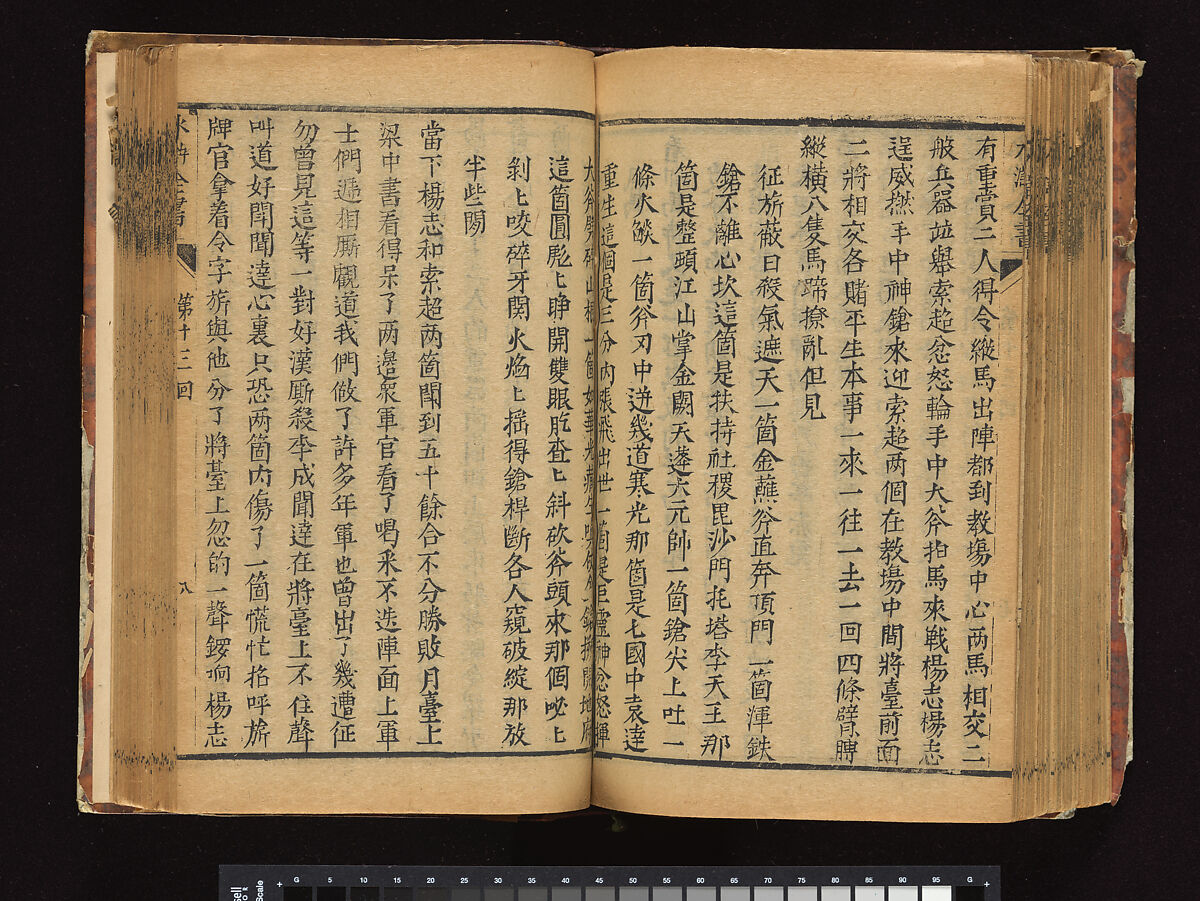 有重賞二人得令縱馬出陣都到教場中心两馬相交二
般兵器並舉索超忿怒輪手中大斧拍馬來戰楊志楊志
逞威撚手中神鎗來迎索超两個在教場中間將臺前面
二將相交各賭平生本事一來一往一去一回四條臂膊
縱橫八隻馬蹄撩亂但見
征旂蔽日殺氣遮天一箇金蘸斧直奔頂門一箇渾鉄
鎗不離心坎這箇是扶持社稷毘沙門托塔李天王那
箇是整頭江山掌金闕天蓬大元帥一箇鎗尖上吐一
條火燄一箇斧刃中迸幾道寒光那箇是七國中袁達
重生這個是三分內張飛出世一箇是巨靈神忿怒揮
大斧劈碎山根一箇如華光藏生嗔仗金鎗搠開地府
這箇圓彪匕睜開雙眼肐查匕斜砍斧頭來那個必匕
剝上咬碎牙関火焰上搖得鎗桿斷各人窺破綻那放
半些閑
當下楊志和索超两箇鬬到五十餘合不分勝敗月臺上
梁中書看得呆了两邊衆軍官看了喝釆不迭陣面上軍
士們遞相厮觑道我們做了許多年軍也曾出了幾遭征
勿曾見這等一對好漢厮殺李成聞達在將臺上不住聲
叫道好鬬聞達心裏只恐两箇內傷了一箇慌忙招呼旂
牌官拿着令字旂與他分了將臺上忽的一聲鑼响楊志
水滸全書
第十三回
八